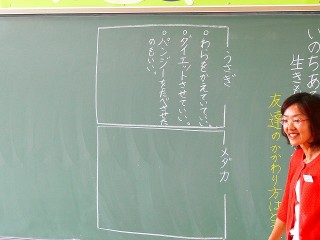 いのちあ
生きも
友達のかかわり方はど
うさぎ
○わらをかえていてい
○ダイエットさせてい。
○パンジーをたべさせた
のもいい。
メダカ